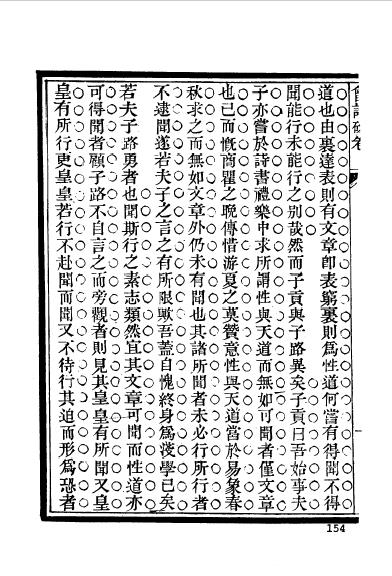 會試硃卷
道也由裏達表則有文章卽表窮裏則爲性道何嘗有得聞不得
聞能行未能行之別哉然而子貢與子路異矣子貢曰吾始事夫
子亦嘗於詩書禮樂中求所謂性與天道而無如可聞者僅文章
也已而慨商瞿之晚傳惜游夏之莫贊意性與天道當於易象春
秋求之而無如文章外仍未有聞也其諸所聞者未必行所行者
不逮聞遂若夫子之言之有所限歟吾蓋自愧終身爲淺學已矣
若夫子路勇者也聞斯行之素志類然宜其文章可聞而性道亦
可得聞者顧子路不自言之而旁觀者則見其皇皇有所聞又皇
皇有所行更皇皇若行不赴聞而聞又不待行其迫而形爲恐者
154